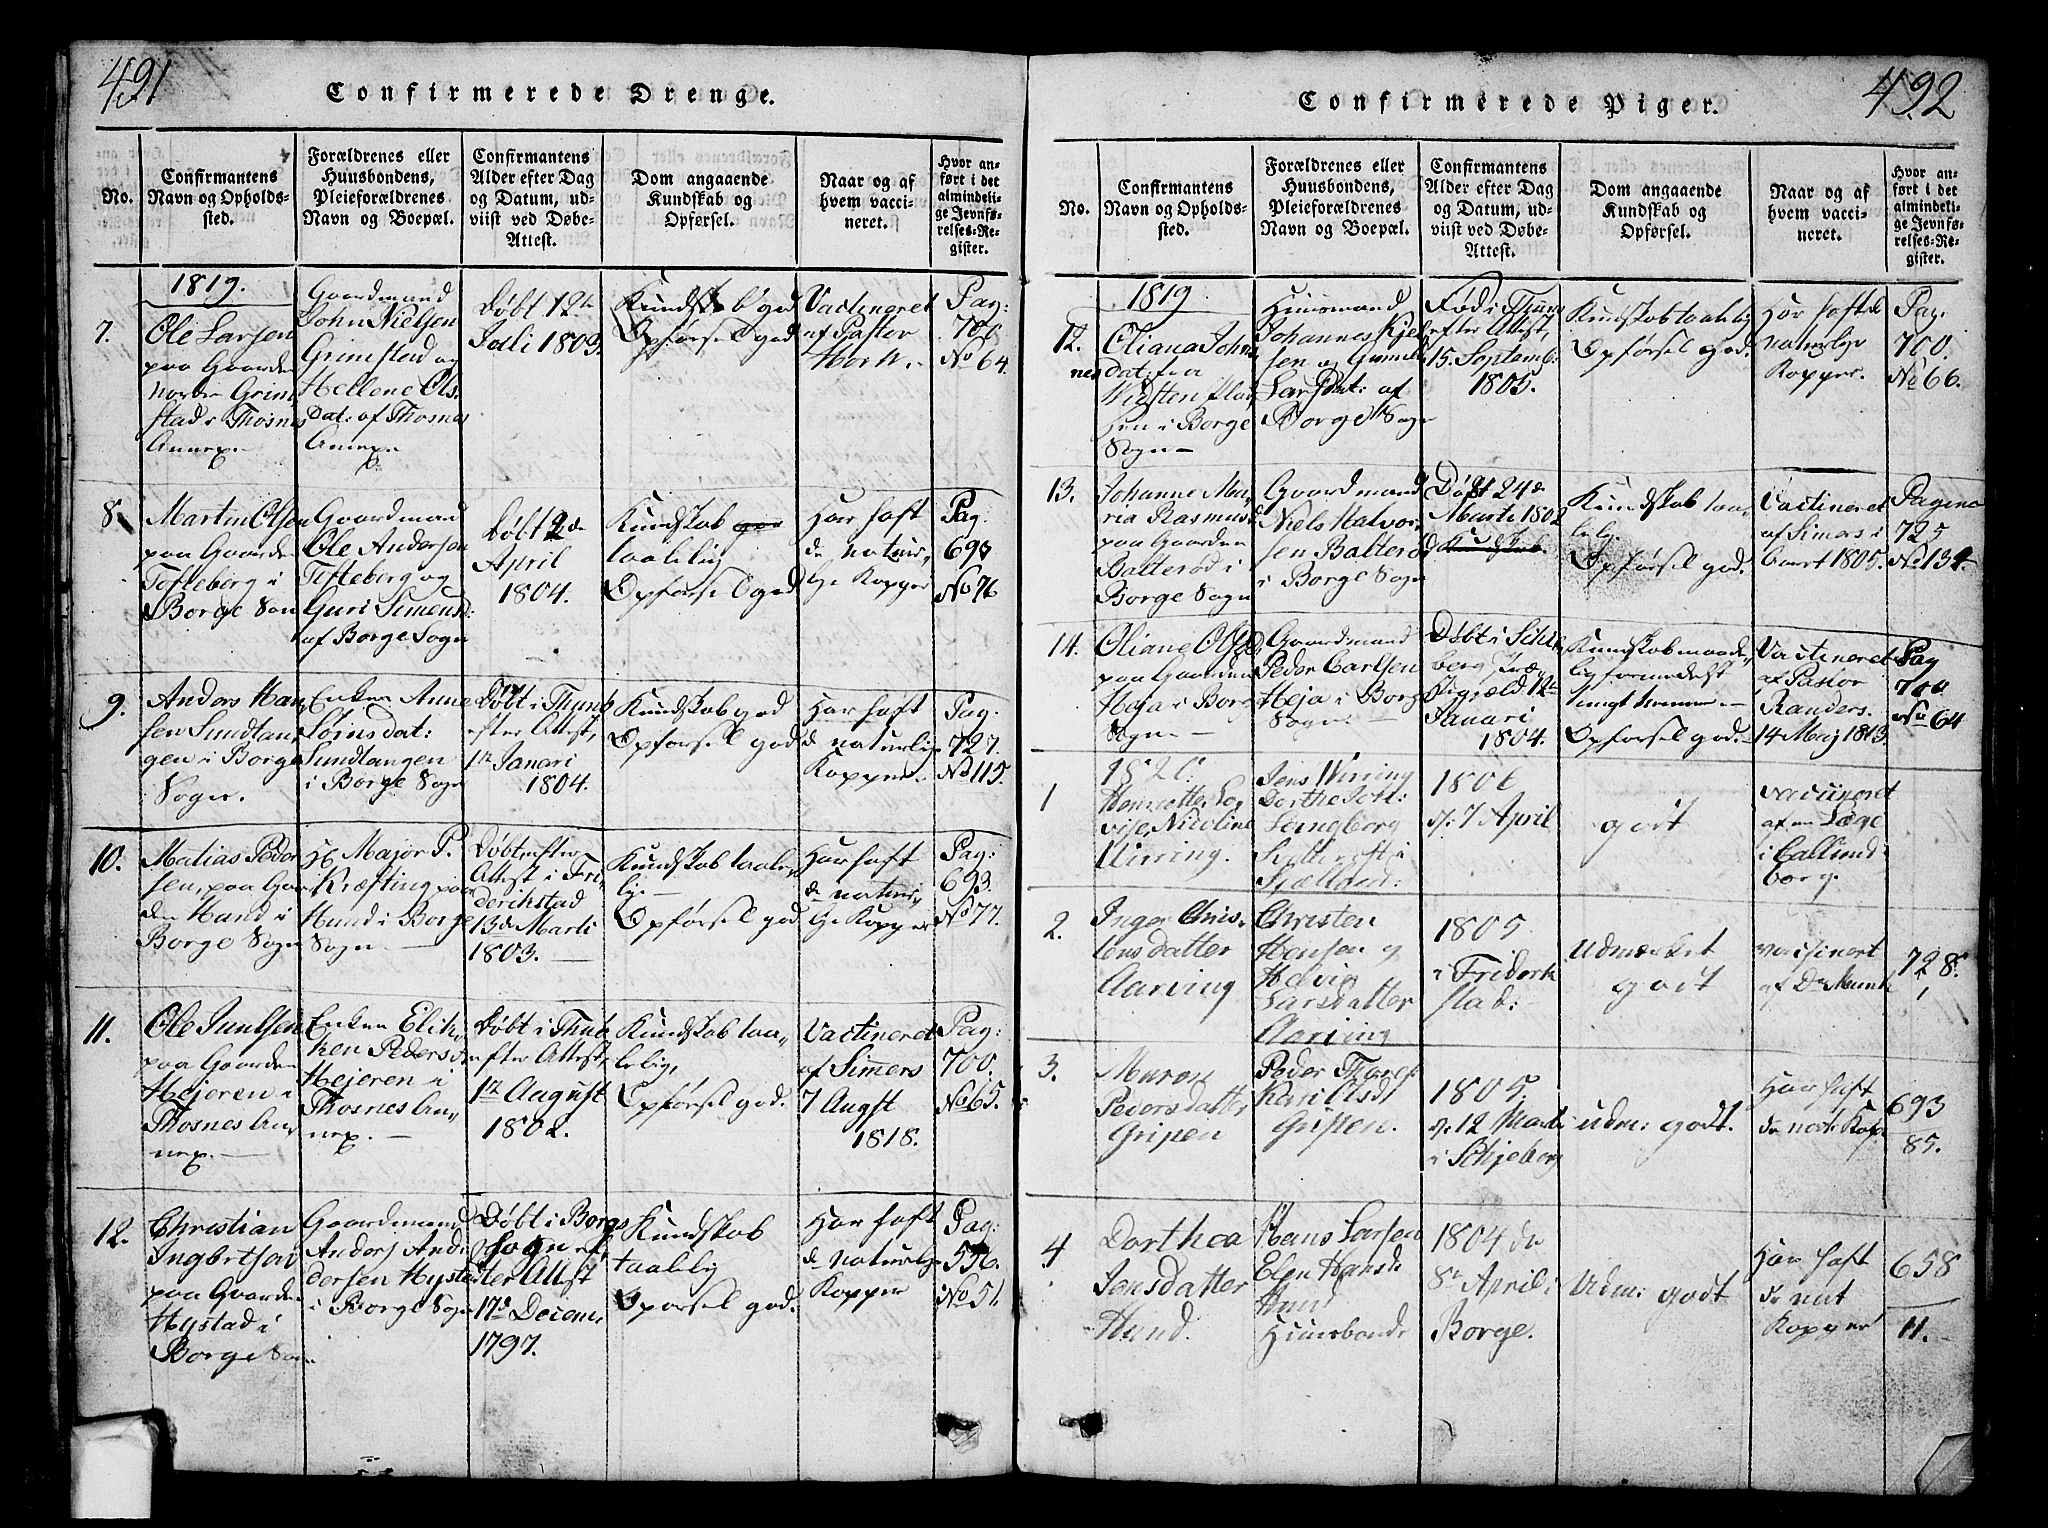 491
Confirmerede Drenge.
No.
Confirmantens
Navn og Opholds-
sted.
Forældrenes eller
Huusbondens,
Pleieforældrenes
Navn og Boepæl.
Confirmantens
Alder efter Dag
og Datum, ud-
viist ved Døbe-
Attest.
Dom angaaende
Kundskab og
Opførsel.
Naar og af
hvem vacci-
neret.
Hvor an-
ført i det
almindeli-
ge Jevnfø-
relses-Re-
gister.
1819.
7.
Ole Larsen
paa Gaarden
norden Grim
stad i Thosnes
Annex.
Gaardmand
John Nielsen
Grimstad og
Hellene Ols
Dat: af Thosnes
Annex.
Døbt 12te
Juli 1803.
Kundskab god
Opførsel god
Vactineret
af Pastor
Hork.
Pag:
700
No 64.
8.
Martin Olsen
paa Gaarden
Tofteberg i
Borge Son
Gaardmand
Ole Andersen
Tofteberg og
Guri Simens:
af Borge Sogn
Døbt 2de
April
1804.
Kundskab god
taalelig
Opførsel god
Har haft
de natur,
lige Kopper
Pag.
693
No 76
9.
Anders Han
sen Sundtan,
gen i Borge
Sogn.
Enken Anne
Lørnsdat:
Sundtangen
i Borge Sogn
Døbt i Thunø
efter Attest,
1te Janari
1804.
Kundskab god
Opførsel god
Har haft
de naturlig
Kopper.
Pag.
727.
No 115.
10.
Matias Peder
sen, paa Gaar
den Hund i
Borge Sogn
H Major P.
Kræfting paa
Hund i Borge
Sogn.
Døbt efter
Attest i Fri,
derichstad
13de Marti
1803.
Kundskab taale,
lig.
Opførsel god
Har haft
de natur,
lige Kopper
Pag:
693.
No 77.
11.
Ole Juulsen
paa Gaarden
Hejeren i
Thosnes An
nex.
Enken Elik,
ken Pedersd
Hejeren i
Thosnes An,
nex.
Døbt i Thunø
efter Attest,
1te August
1802.
Kundskab taa,
lelig,
Opførsel god.
Vactineret
af Simers
7 Augst
1818.
Pag:
700.
No 65.
12.
Christian
Ingbrtsen
paa Gaarden
Hystad i
Borge Son
Gaardmand
Anders An
dersen Hysted
i Borge Sogn
Døbt i Borge
Sogn ef,
ter Attest
17de Decem,
1797.
Kundskab
taalelig
Opørsel god.
Har haft
de naturlge
Kopper
Pag:
556.
No 51.
492
Confirmerede Piger.
No.
Confirmantens
Navn og Opholds-
sted.
Forældrenes eller
Huusbondens,
Pleieforældrenes
Navn og Boepæl.
Confirmantens
Alder efter Dag
og Datum, ud-
viist ved Døbe-
Attest.
Dom angaaende
Kundskab og
Opførsel.
Naar og af
hvem vacci-
neret.
Hvor an-
ført i det
almindeli-
ge Jevnfø-
relses-Re-
gister.
1819
12.
Oliana Johan
nes dat: paa
i Borge
Sogn
Huusmand
Johannes Kjel
sen og Gunnil
Larsdat: af
Borge Sogn
Fød i Thunø
efter Attest,
15. Septemb:
1805.
Kundskab taalelig
Opførsel god.
Har haft de
natuelige
Kopper.
Pag:
700.
No 66.
13.
Johanne Ma,
ria Rasmus,
paa Gaarden
Balterød i
Borge Sogn
Gaardmand
Niels Halvor,
sen Balterød
i Borge Sogn
Døbt 24de
Marti 1802
Kundskab.
Kundskab taa,
lelig.
Opførsel god.
Vactineret
af Simers i
Aaret 1805.
Pagina
725
No 134
14.
Oliane OlsD,
paa Gaarden
Heja i Borg
Sogn
Gaardmand
Peder Carlsen
Heja i Borg
Sogn.
Døbt i Schie,
berg Præ,
stegjæld 12te
Janari
1804.
Kundskab maade,
lig formedelst
tungt nemme
Opførsel god.
Vactineret
af Pastor
Randers.
14 Maj 1813.
Pag
700.
No 64
1
1820.
Henriette Lo,
vise, Nicoline
Wirring.
Jens Wirring
Dorthe Joh:
Lemgborg
i
Sjælland:
1806
d: 7 April
godt
vaccineret
af en Læge
i Callund,
borg.
2.
Inger Chris,
tensdatter
Aarving
Christen
Hensen og
Helvig
Larsdatter
Aarving
1805
i Friderk
stad:
Udmærket
godt
vaccineret
af Dr Munk
728.
1
3.
Maren
Pedersdatter
Gripen
Peder Thores
Kari Olsdt
Gripen.
1805.
d: 12 Marti
i Schjeberg
udm: godt.
Har haft
de nat: Kop
693
85.
4
Dorthea
Jensdatter
Hund.
Hans Larsen
Elen Hansd:
Hund
Huusbond:
1804 de
8te April:
Borge.
Udm: godt
Har haft
de nat
Kopper
658
11.